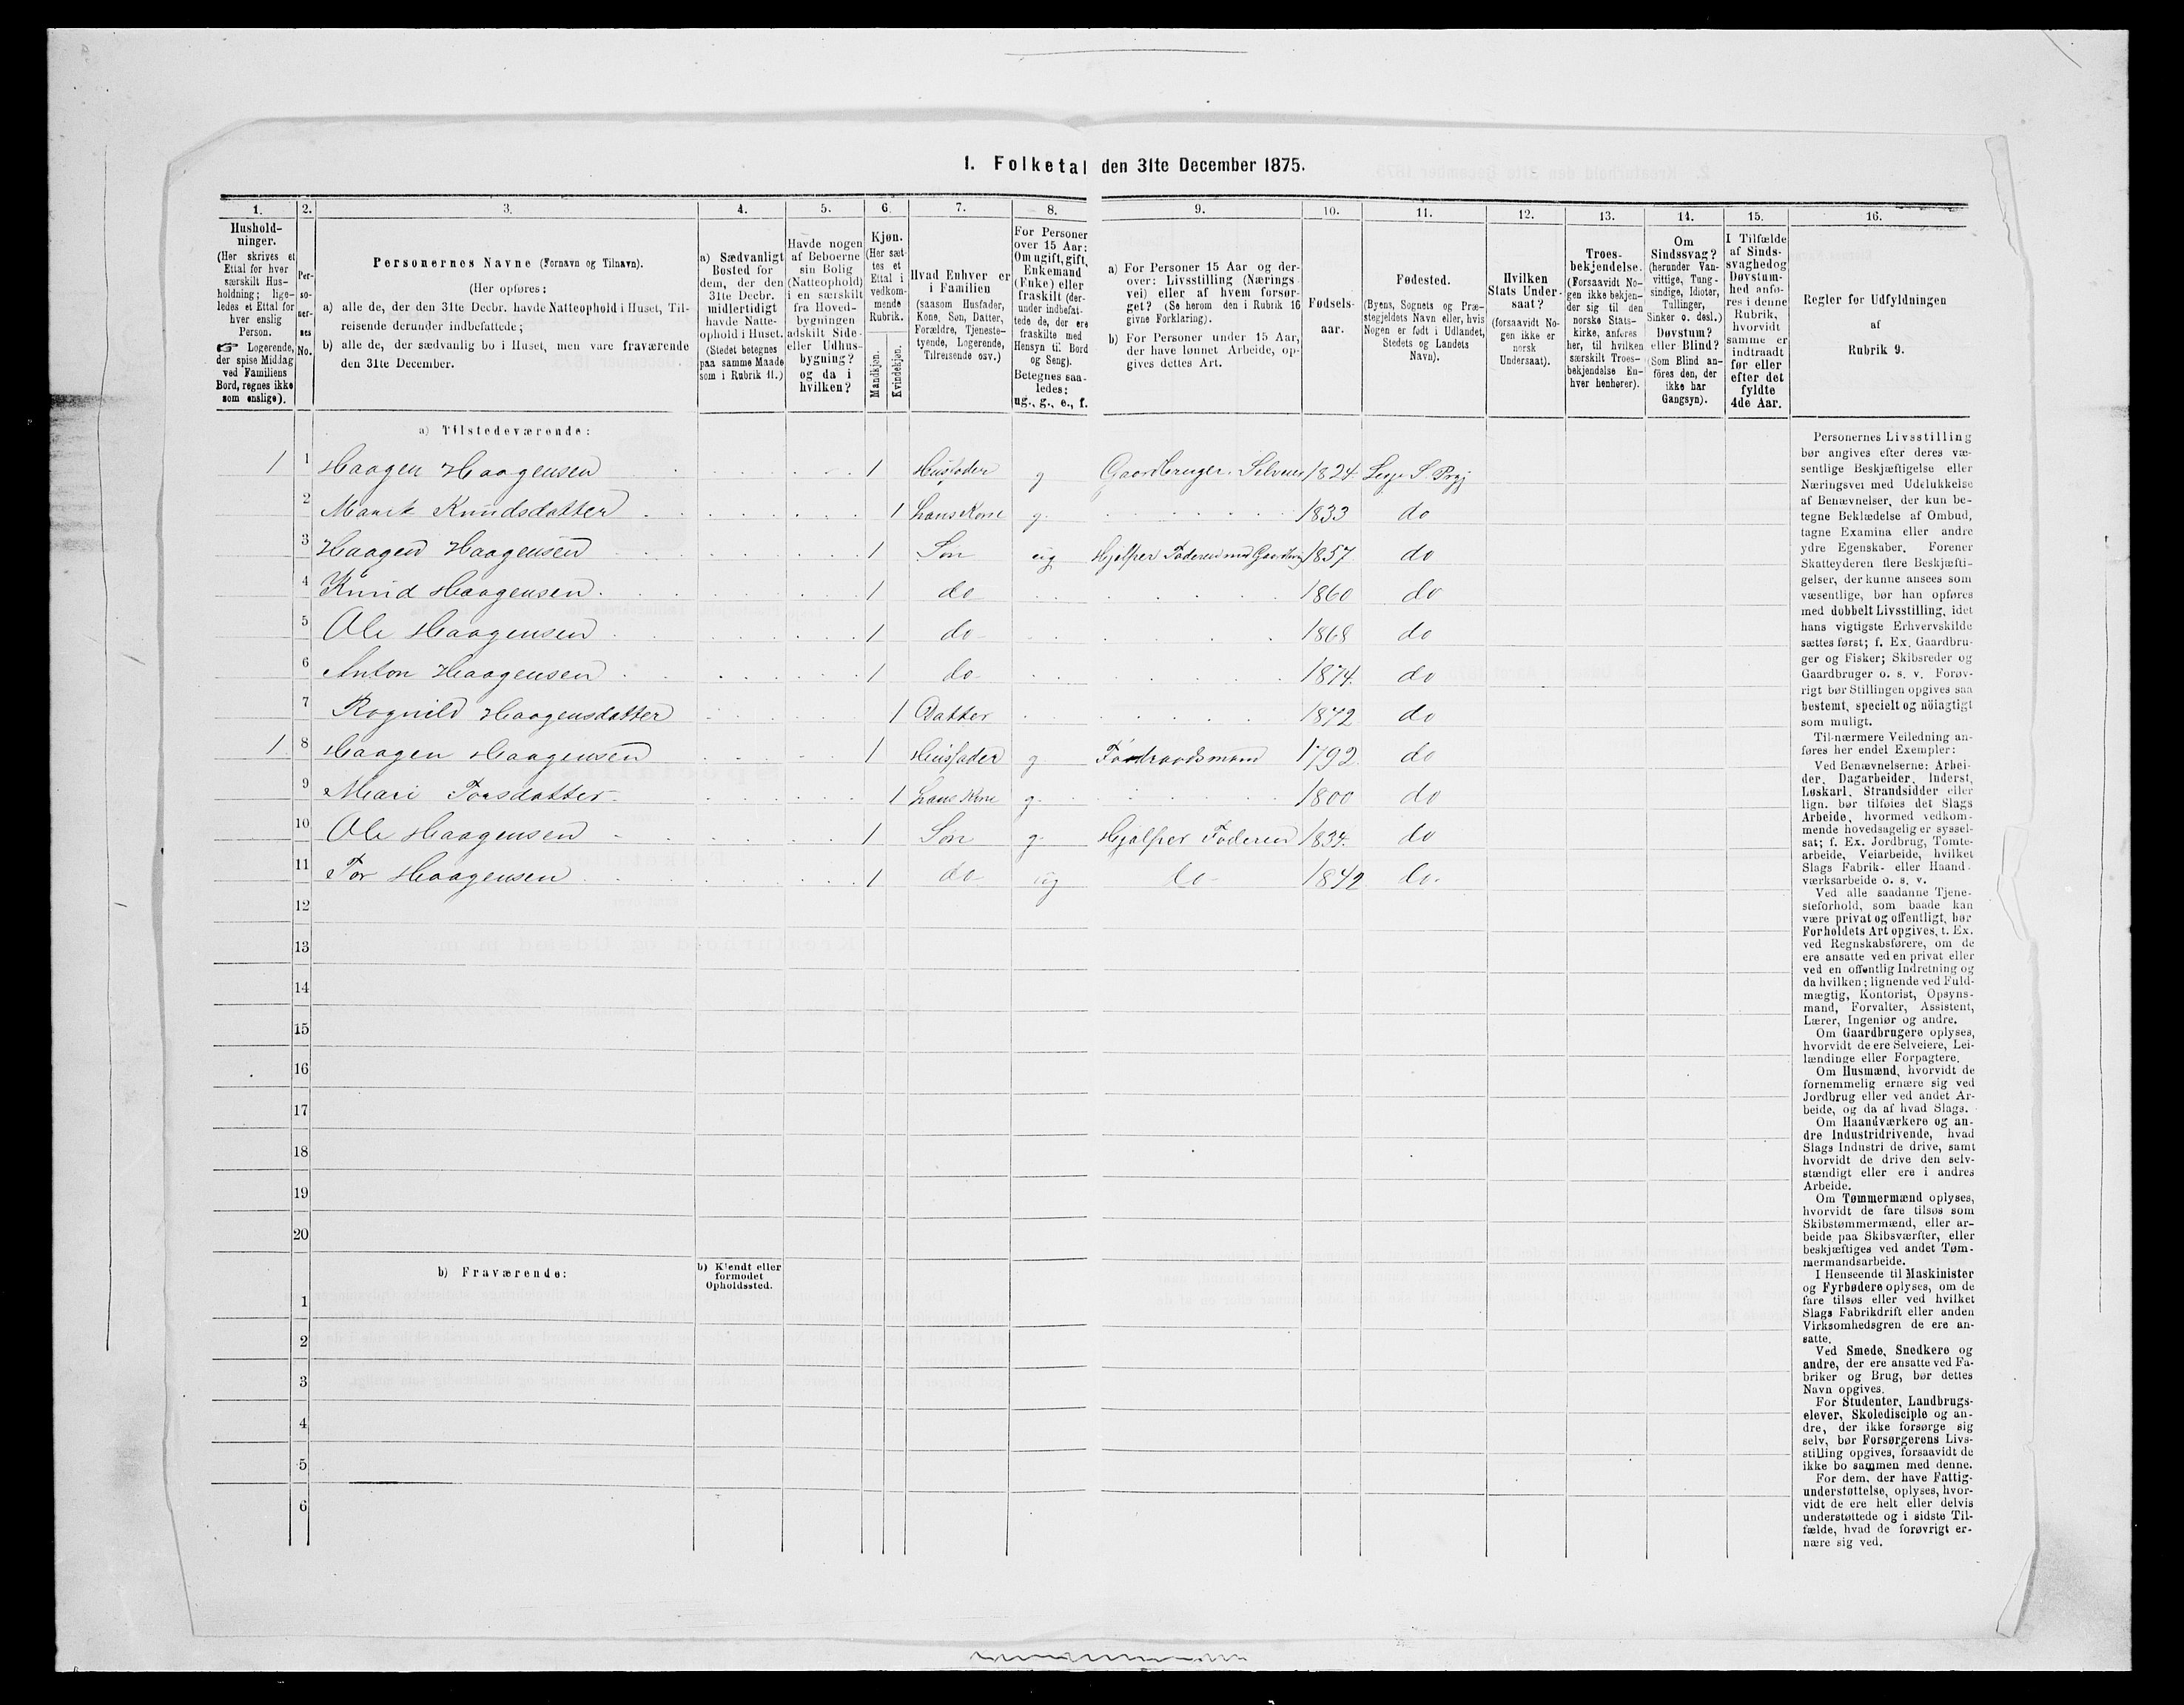 1. Folketal den 31te December 1875.
1. 2. 3. 4. 5. 6. 7. 8. 9. 10. 11. 12. 13. 14. 15. 16.
Hushold-
ninger.
(Her skrives et
Ettal for hver
særskilt Hus-
holdning; lige-
ledes et Ettal for
hver enslig
Person.
☞ Logerende,
der spise Middag
ved Familiens
Bord, regnes ikke
som enslige).
Per-
so-
ner-
nes
No.
Personernes Navne (Fornavn og Tilnavn).
(Her opføres:
a) alle de, der den 31te Decbr. havde Natteophold i Huset, Til-
reisende derunder indbefattede;
b) alle de, der sædvanlig bo i Huset, men vare fraværende
den 31te December.
a) Sædvanligt
Bosted for
dem, der den
31te Decbr.
midlertidigt
havde Natte-
ophold i Huset.
(Stedet betegnes
paa samme Maade
som i Rubrik 11.)
Havde nogen
af Beboerne
sin Bolig
(Natteophold)
i en særskilt
fra Hoved-
bygningen
adskilt Side-
eller Udhus-
bygning?
og da i
hvilken?
Kjøn.
(Her sæt-
tes et
Ettal i
vedkom-
mende
Rubrik.
Mandkjøn.
Kvindekjøn.
Hvad Enhver er
i Familien
(saasom Husfader,
Kone, Søn, Datter,
Forældre, Tjeneste-
tyende, Logerende,
Tilreisende osv.)
For Personer
over 15 Aar:
Om ugift, gift,
Enkemand
(Enke) eller
fraskilt (der-
under indbefat-
tede de, der ere
fraskilte med
Hensyn til Bord
og Seng).
Betegnes saa-
ledes:
ug., g., e., f.
a) For Personer 15 Aar og der-
over: Livsstilling (Nærings-
vei) eller af hvem forsør-
get? (Se herom den i Rubrik 16
givne Forklaring).
b) For Personer under 15 Aar,
der have lønnet Arbeide, op-
gives dettes Art.
Fødsels-
aar.
Fødested.
(Byens, Sognets og Præ-
stegjeldets Navn eller, hvis
Nogen er født i Udlandet,
Stedets og Landets
Navn).
Hvilken
Stats Under-
saat?
(forsaavidt No-
gen ikke er
norsk
Undersaat).
Troes-
bekjendelse.
(Forsaavidt No-
gen ikke bekjen-
der sig til den
norske Stats-
kirke, anføres
her, til hvilken
særskilt Troes-
bekjendelse En-
hver henhører).
Om
Sindssvag?
(herunder Van-
vittige, Tung-
sindige, Idioter,
Tullinger,
Sinker o. desl.)
Døvstum?
eller Blind?
(Som Blind an-
føres den, der
ikke har
Gangsyn).
I Tilfælde
af Sinds-
svaghed og
Døvstum-
hed anfø-
res i denne
Rubrik,
hvorvidt
samme er
indtraadt
før eller
efter det
fyldte
4de Aar.
Regler for Udfyldningen
af
Rubrik 9.
a) Tilstedeværende:
1 1 Haagen Haagensen 1 Husfader g Gaardbruger. Selveier 1824. S. Prgj
2 Marit Knudsdatter 1 hans Kone g. 1833 do
3 Haagen Haagensen 1 Søn ug Hjelper Faderen med 1857 do
4 Knud Haagensen. 1 do 1860 do
5 Ole Haagensen 1 do 1868 do
6 Anton Haagensen 1 do 1874. do
7 Rognild Haagensdatter 1 Datter 1872 do
1 8 Haagen Haagensen 1 Husfader g Føderaadsmand 1792 do
9 Mari Torsdatter 1 hans Kone g. 1800 do
10 Ole Haagensen 1 Søn g. Hjælper Faderen 1834. do
11 Tor Haagensen 1 do ug do 1842 do.
12
13
14
15
16
17
18
19
20
b) Fraværende:
b) Kjendt eller
formodet
Opholdssted.
1
2
3
4
5
6
Personernes Livsstilling
bør angives efter deres væ-
sentlige Beskjæftigelse eller
Næringsvei med Udelukkelse
af Benævnelser, der kun be-
tegne Beklædelse af Ombud,
tagne Examina eller andre
ydre Egenskaber. Forener
Skatteyderen flere Beskjæfti-
gelser, der kunne ansees som
væsentlige, bør han opføres
med dobbelt Livsstilling, idet
hans vigtigste Erhvervskilde
sættes først; f. Ex. Gaardbru-
ger og Fisker; Skibsreder og
Gaardbruger o. s. v. Forøv-
rigt bør Stillingen opgives saa
bestemt, specielt og nöiagtigt
som muligt.
Til nærmere Veiledning an-
føres her endel Exempler:
Ved Benævnelserne: Arbei-
der, Dagarbeider, Inderst,
Løskarl, Strandsidder eller
lign. bør tilføies det Slags
Arbeide, hvormed vedkom-
mende hovedsagelig er syssel-
sat; f. Ex. Jordbrug, Tomte-
arbeide, Veiarbeide, hvilket
Slags Fabrik- eller Haand-
værksarbeide o. s. v.
Ved alle saadanne Tjene-
steforhold, som baade kan
være privat og offentligt, bør
Forholdets Art opgives, t. Ex.
ved Regnskabsførere, om de
ere ansatte ved en privat eller
ved en offentlig Indretning og
da hvilken; lignende ved Fuld-
mægtig, Kontorist, Opsyns-
mand, Forvalter, Assistent,
Lærer, Ingeniør og andre.
Om Gaardbrugere oplyses,
hvorvidt de ere Selveiere, Lei-
lændinge eller Forpagtere.
Om Husmænd, hvorvidt de
fornemmelig ernære sig ved
Jordbrug eller ved andet Ar-
beide, og da af hvad Slags.
Om Haandværkere og an-
dre Industridrivende, hvad
Slags Industri de drive, samt
hvorvidt de drive den selv-
stændigt eller ere i andres
Arbeide.
Om Tømmermænd oplyses,
hvorvidt de fare tilsøs som
Skibstømmermænd, eller ar-
beide paa Skibsværfter, eller
beskjæftiges ved andet Tøm-
mermandsarbeide.
I Henseende til Maskinister
og Fyrbødere oplyses, om de
fare tilsøs eller ved hvilket
Slags Fabrikdrift eller anden
Virksomhedsgren de ere an-
satte.
Ved Smede, Snedkere og
andre, der ere ansatte ved Fa-
briker og Brug, bør dettes
Navn opgives.
For Studenter, Landbrugs-
elever, Skoledisciple og an-
dre, der ikke forsørge sig
selv, bør Forsørgerens Livs-
stilling opgives, forsaavidt de
ikke bo sammen med denne.
For dem, der have Fattig-
understøttelse, oplyses, hvor-
vidt de ere helt eller delvis
understøttede og i sidste Til-
fælde, hvad de forøvrigt er-
nære sig ved.